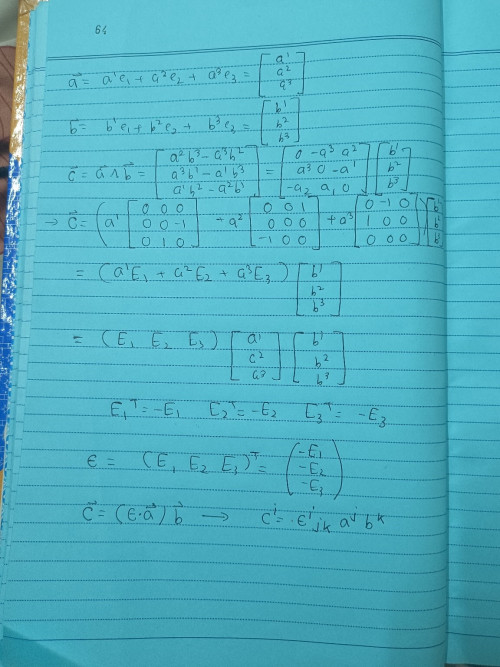 64
a⃗ = a¹e₁ + a²e₂ + a³e₃ = [a¹; a²; a³]
b⃗ = b¹e₁ + b²e₂ + b³e₃ = [b¹; b²; b³]
c⃗ = a⃗ ∧ b⃗ = [a²b³ − a³b²; a³b¹ − a¹b³; a¹b² − a²b¹] = [0 −a³ a²; a³ 0 −a¹; −a₂ a₁ 0] [b¹; b²; b³]
→ c⃗ = (a¹ [0 0 0; 0 0 −1; 0 1 0] + a² [0 0 1; 0 0 0; −1 0 0] + a³ [0 −1 0; 1 0 0; 0 0 0]) [b; b; b]
= (a¹E₁ + a²E₂ + a³E₃) [b¹; b²; b³]
= (E₁ E₂ E₃) [a¹; a²; a³] [b¹; b²; b³]
E₁ᵀ = −E₁ E₂ᵀ = −E₂ E₃ᵀ = −E₃
ϵ = (E₁ E₂ E₃)ᵀ = (−E₁; −E₂; −E₃)
c⃗ = (ϵ·a⃗) b⃗ → cⁱ = ϵⁱⱼₖ aʲ bᵏ